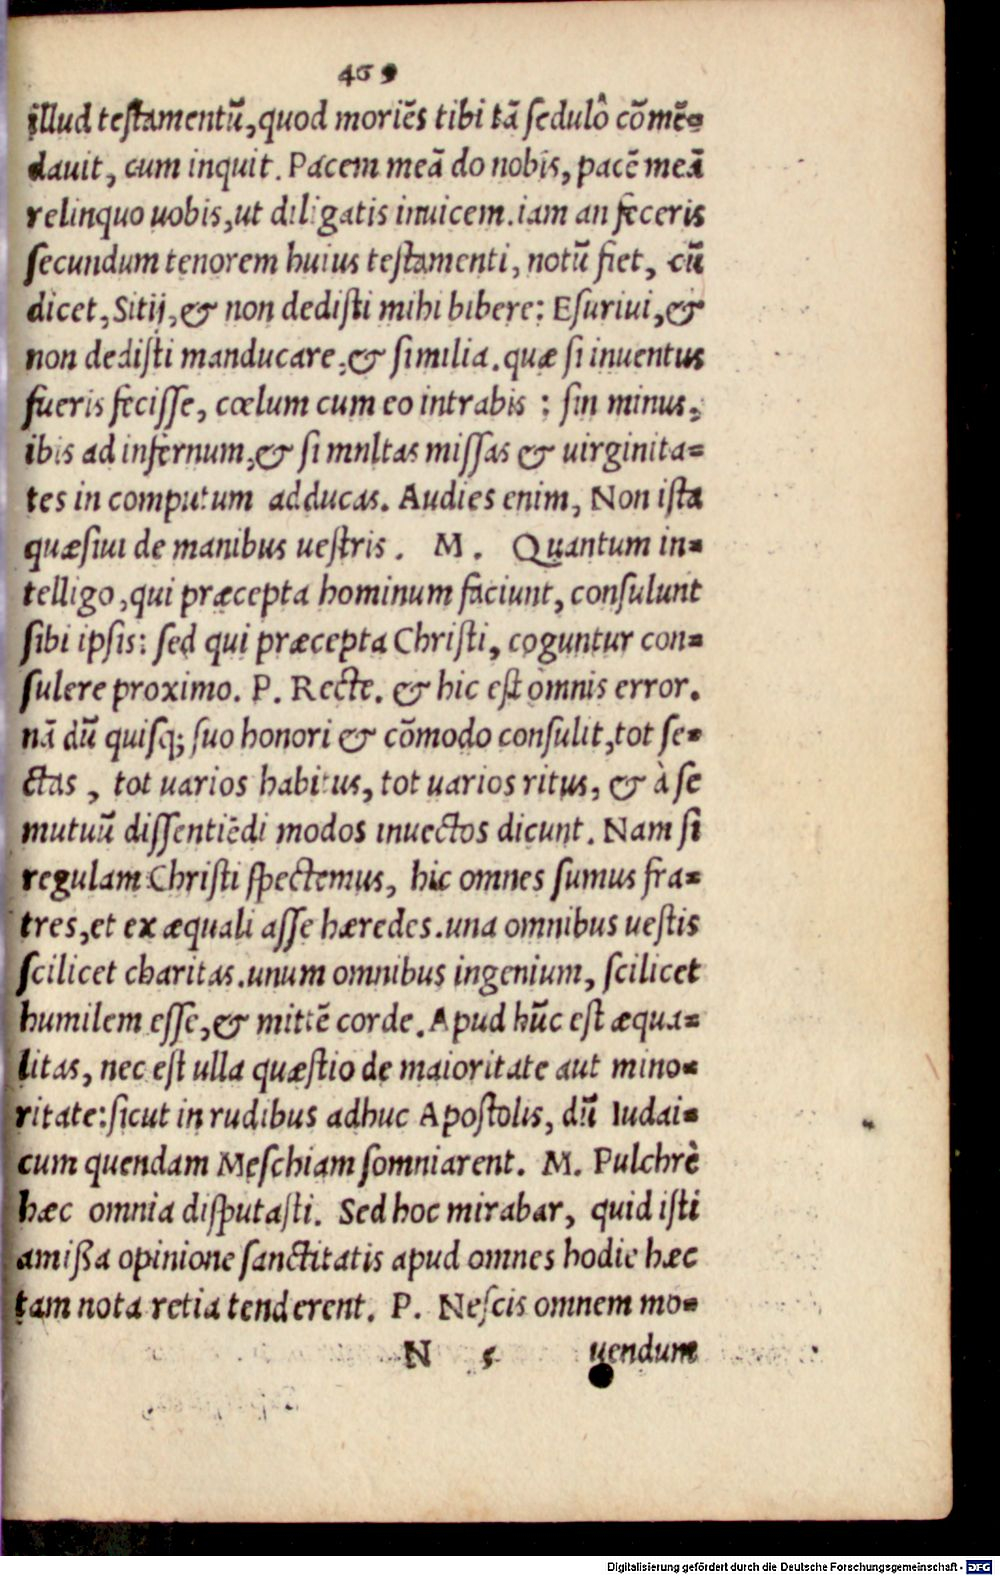 469
illud testamentũ, quod moriẽs tibi tã sedulô cõmẽ=
dauit, cum inquit. Pacem meã do nobis, pacẽ meã
relinquo uobis, ut diligatis inuicem. iam an feceris
secundum tenorem huius testamenti, notũ fiet, cũ
dicet, Sitij, & non dedisti mihi bibere: Esuriui, &
non dedisti manducare, & similia. quæ si inuentus
fueris fecisse, cœlum cum eo intrabis: sin minus,
ibis ad infernum, & si mnltas missas & uirginita=
tes in computum adducas. Audies enim, Non ista
quæsiui de manibus uestris. M. Quantum in=
telligo, qui præcepta hominum faciunt, consulunt
sibi ipsis: sed qui præcepta Christi, coguntur con=
sulere proximo. P. Recte. & hic est omnis error.
nã dũ quisq; suo honori & cõmodo consulit, tot se=
ctas, tot uarios habitus, tot uarios ritus, & à se
mutuũ dissentiẽdi modos inuectos dicunt. Nam si
regulam Christi spectemus, hic omnes sumus fra=
tres, et ex æquali asse hæredes. una omnibus uestis
scilicet charitas. unum omnibus ingenium, scilicet
humilem esse, & mittẽ corde. Apud hũc est æqua=
litas, nec est ulla quæstio de maioritate aut mino=
ritate: sicut in rudibus adhuc Apostolis, dũ Iudai=
cum quendam Meschiam somniarent. M. Pulchrè
hæc omnia disputasti. Sed hoc mirabar, quid isti
amißa opinione sanctitatis apud omnes hodie hæc
tam nota retia tenderent. P. Nescis omnem mo=
N 5 uendum
Digitalisierung gefördert durch die Deutsche Forschungsgemeinschaft - DFG